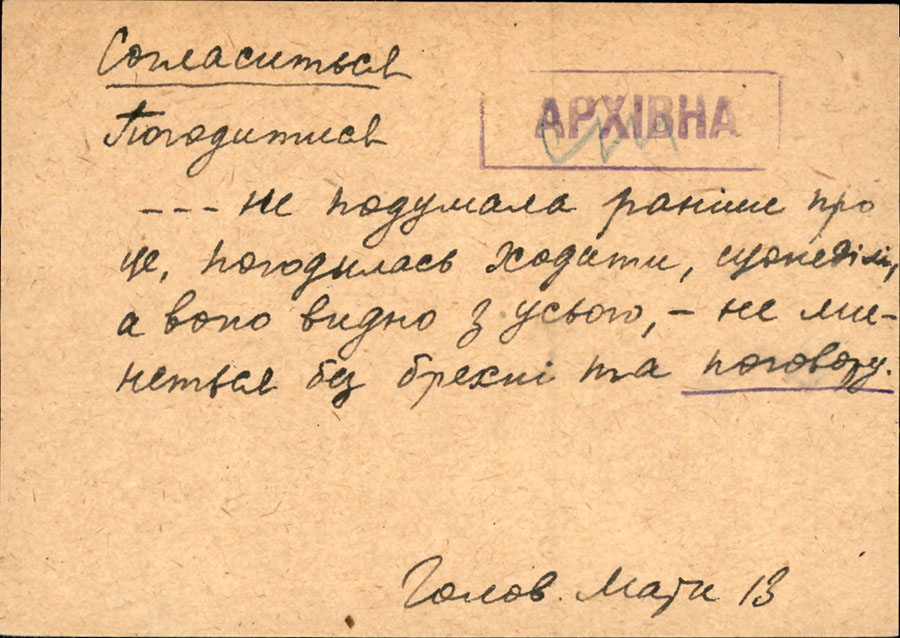 Согласиться
АРХІВНА
Погодитись
--- не подумала раніше про
це, погодилась ходити, щонеділі,
а воно видно з усього, – не ми-
неться без брехні та поговору.
Голов. Мати 13